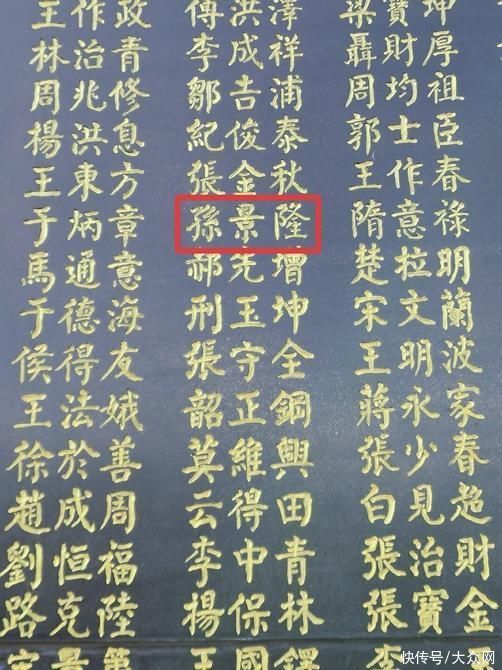 王作政
林治青
周兆修
楊洪息
王東方
于炳章
馬通意
于德海
侯得友
王法娥
徐於善
趙成周
劉恒福
路克陸
傅洪澤
李成祥
鄒吉浦
紀俊泰
張金秋
孫景隆
祁先增
刑玉坤
張守全
韶正鋼
莫維興
云得田
李中青
楊保林
王國鐸
梁寶坤
聶財厚
周均祖
郭士臣
王作春
隋意祿
楚拉明
宋文蘭
王明波
蔣永家
張少春
白見超
張治財
張寶金
快传号/大众网